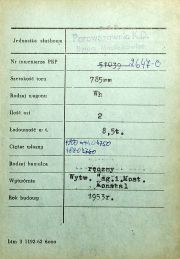 Jednostka służbowa
Parowozownia K.D.
Nr inwentarza PKP 51039 2647-0
Szerokość toru 785mm
Rodzaj wagonu Wh
Ilość osi 2
Ładowność w t. 8,5t.
Ciężar własny
Rodzaj hamulca ręczny
Wytwórnia Wytw. Wag.i.Most.
Konstal
Rok budowy 1953r.